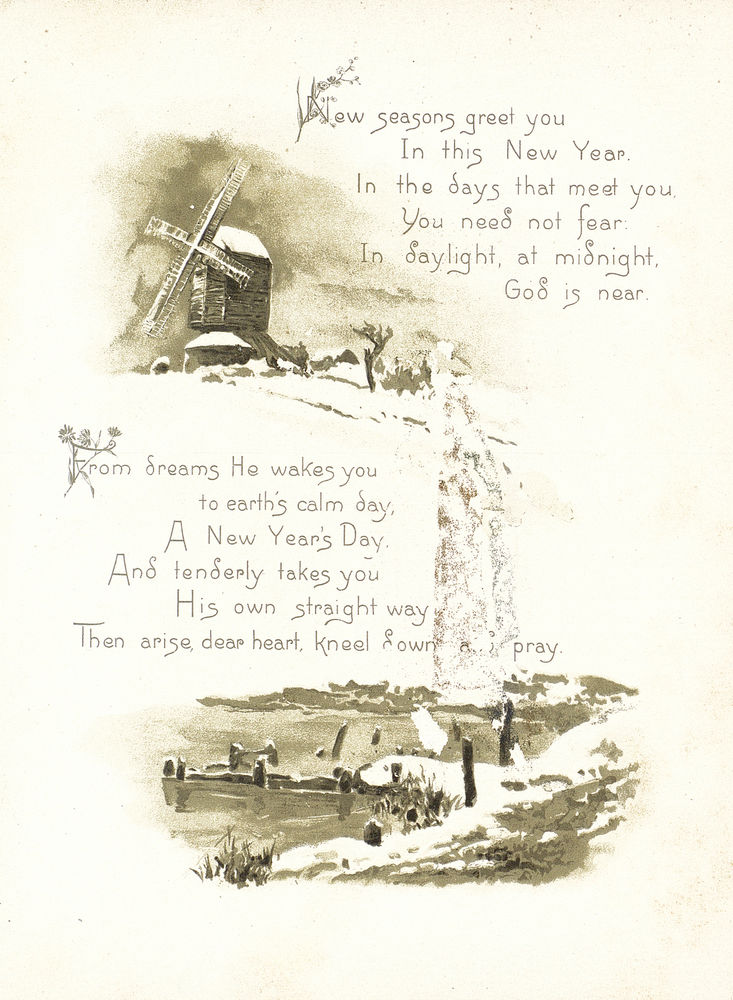 New seasons greet you
In this New Year.
In the days that meet you,
You need not fear:
In daylight, at midnight,
God is near.
From dreams He wakes you
to earth's calm day,
A New Year's Day.
And tenderly takes you
His own straight way
Then arise, dear heart, kneel down pray.